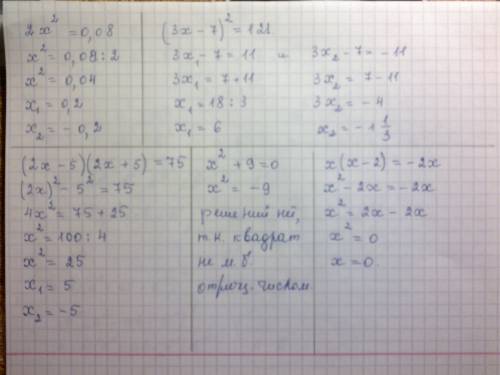 2x² = 0,08
x² = 0,08 : 2
x² = 0,04
x₁ = 0,2
x₂ = - 0,2
(3x - 7)² = 121
3x₁ - 7 = 11 и 3x₂ - 7 = - 11
3x₁ = 7 + 11 3x₂ = 7 - 11
x₁ = 18 : 3 3x₂ = - 4
x₁ = 6 x₂ = - 1 1/3
(2x - 5)(2x + 5) = 75
(2x)² - 5² = 75
4x² = 75 + 25
x² = 100 : 4
x² = 25
x₁ = 5
x₂ = - 5
x² + 9 = 0
x² = - 9
решений нет,
т.к. квадрат
не м.б.
отриц. числом
x(x - 2) = - 2x
x² - 2x = - 2x
x² = 2x - 2x
x² = 0
x = 0.